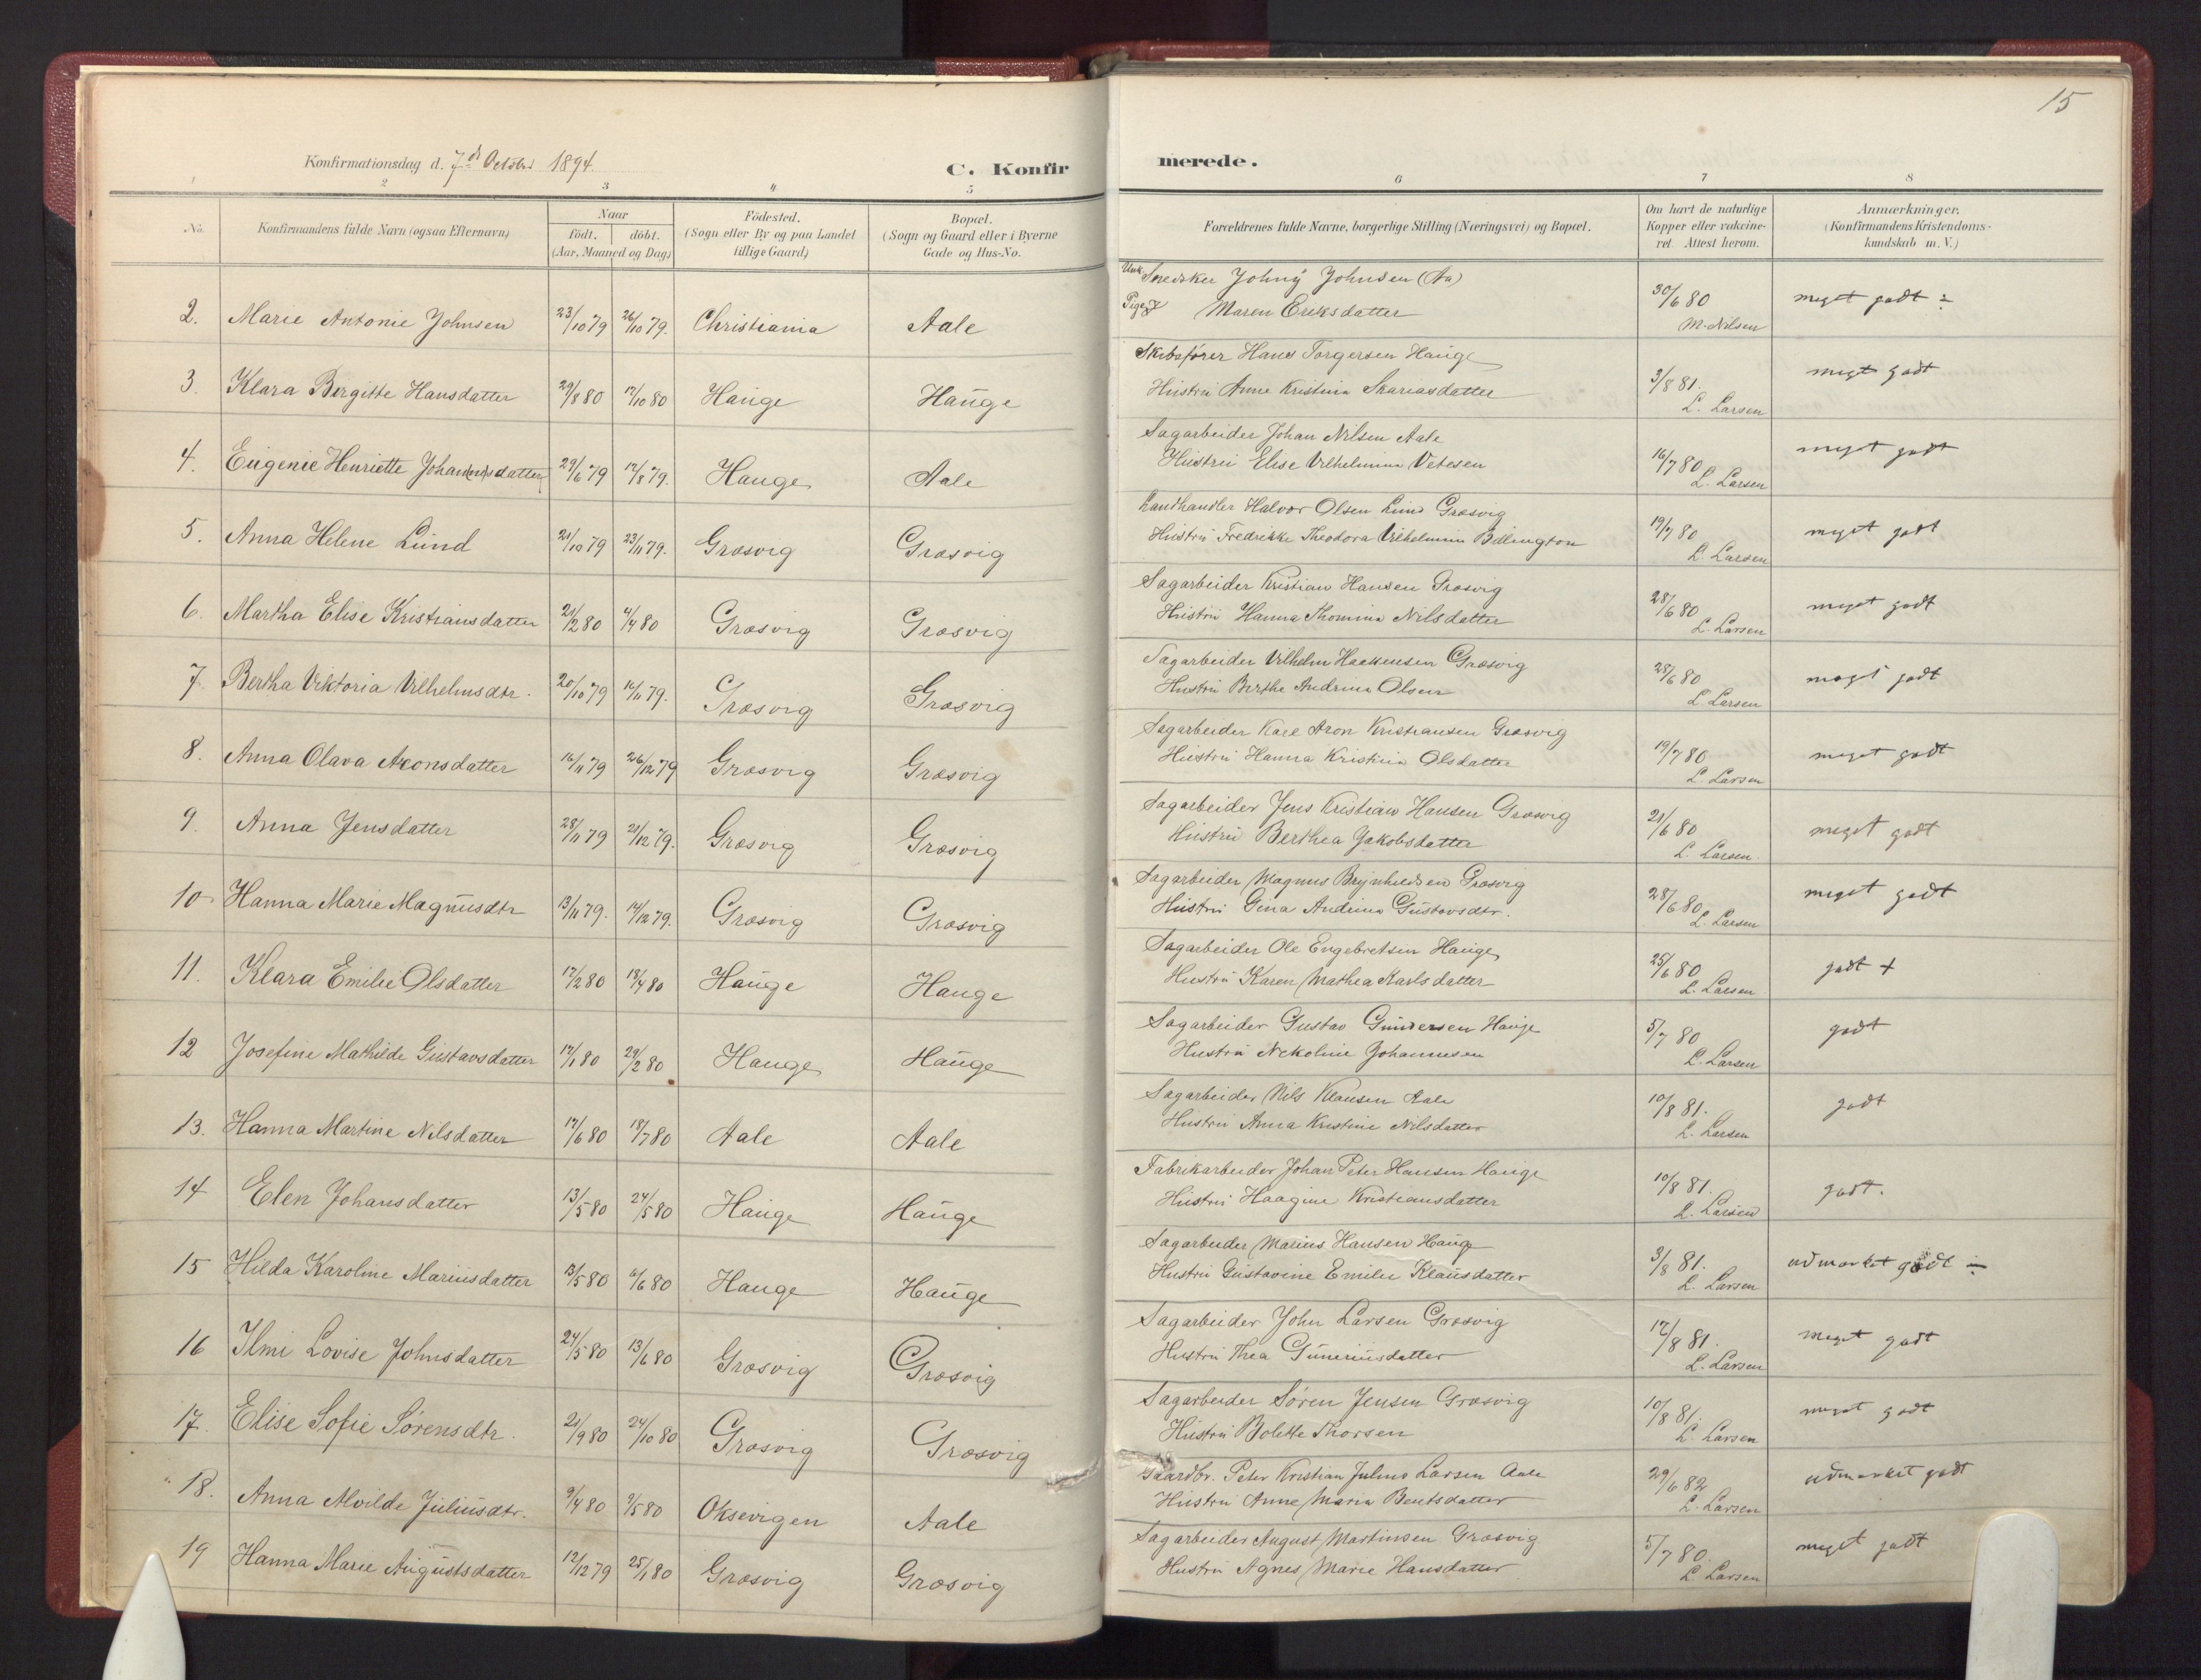 15
Konfirmationsdag d. 7de October 1894.
C. Konfirmerede.
1 2 3 4 5 6 7 8
No.
Konfirmandens fulde Navn (ogsaa Efternavn)
Naar
födt. döbt.
(Aar, Maaned og Dag)
Födested.
(Sogn eller By og paa Landet
tillige Gaard)
Bopæl.
(Sogn og Gaard eller i Byerne
Gade og Hus-No.
Forældrenes fulde Navne, borgerlige Stilling (Næringsvei) og Bopæl.
Om havt de naturlige
Kopper eller vakcine-
ret. Attest herom.
Anmærkninger.
(Konfirmandens Kristendoms-
kundskab m. V.)
2. Marie Antonie Johnsen 23/10 79 26/10 79. Christiania Aale Snedker Johny Johnsen (Aa) 30/6 80 meget godt
Pige Maren Eriksdatter M. Nilsen
3. Klara Birgitte Hansdatter 29/8 80 17/10 80 Hauge Hauge Skibsfører Hans Torgersen Hauge 3/8 81. meget godt
Hustru Anne Kristina Skariasdatter L. Larsen
4. Eugenie Henriette Johan(ne)sdatter 29/6 79 17/8 79. Hauge Aale Sagarbeider Johan Nilsen Aale 16/7 80 meget godt
Hustru Elise Vilhelmina Vetesen L. Larsen
5. Anna Helene Lund 21/10 79 23/11 79. Græsvig Græsvig Landhandler Halvor Olsen Lund Græsvig 19/7 80 meget godt
Hustru Fredrikke Theodora Vilhelmine Billington L. Larsen
6. Martha Elise Kristiansdatter 21/2 80 4/4 80 Græsvig Græsvig Sagarbeider Kristian Hansen Græsvig 28/6 80 meget godt
Hustru Hanna Thomina Nilsdatter L. Larsen
7. Bertha Viktoria Vilhelmsdtr. 20/10 79 16/11 79. Græsvig Græsvig Sagarbeider Vilhelm Haakensen Græsvig 28/6 80 meget godt
Hustru Berthe Andrina Olsen L. Larsen
8. Anna Olava Aronsdatter 16/11 79 26/12 79 Græsvig Græsvig Sagarbeider Karl Aron Kristiansen Græsvig 19/7 80 meget godt
Hustru Hanna Kristina Olsdatter L. Larsen
9. Anna Jensdatter 28/11 79 21/12 79. Græsvig Græsvig Sagarbeider Jens Kristian Hansen Græsvig 21/6 80 meget godt
Hustru Berthea Jakobsdatter L. Larsen.
10 Hanna Marie Magnusdtr 13/11 79. 14/12 79. Græsvig Græsvig Sagarbeider Magnus Brynhildsen Græsvig 28/6 80 meget godt
Hustru Gina Andrina Gustavsdtr. L. Larsen
11. Klara Emilie Olsdatter 17/2 80 18/4 80 Hauge Hauge Sagarbeider Ole Engebretsen Hauge 25/6 80 godt +
Hustru Karen Mathea Karlsdatter L. Larsen
12 Josefine Mathilde Gustavsdatter 17/1 80 29/2 80 Hauge Hauge Sagarbeider Gustav Gundersen Hauge 5/7 80 godt
Hustru Nekoline Johannesen L. Larsen
13. Hanna Martine Nilsdatter 17/6 80 18/7 80 Aale Aale Sagarbeider Nils Klausen Aale 10/8 81. godt
Hustru Anna Kristine Nilsdatter L. Larsen
14 Elen Johansdatter 13/5 80 24/5 80 Hauge Hauge Fabrikarbeider Johan Peter Hansen Hauge 10/8 81. godt.
Hustru Haagine Kristiansdatter L. Larsen
15 Hilda Karoline Mariusdatter 13/5 80 6/6 80 Hauge Hauge Sagarbeider Marius Hansen Hauge 3/8 81. udmærket godt ÷
Hustru Gustavine Emilie Klausdatter L. Larsen
16 Ilmi Lovise Johnsdatter 24/5 80 13/6 80 Græsvig Græsvig Sagarbeider John Larsen Græsvig 17/8 81. meget godt
Hustru Thea Guneriusdatter L. Larsen
17. Elise Sofie Sørensdtr. 21/9 80 24/10 80 Græsvig Græsvig Sagarbeider Søren Jensen Græsvig 10/8 81. meget godt
Hustru Bolette Thorsen L. Larsen
18. Anna Alvilde Juliusdtr. 9/4 80 9/5 80 Oksevigen Aale Gaardbr. Peter Kristian Julius Larsen Aale 29/6 82 udmærket godt
Hustru Anne Maria Bentsdatter L. Larsen
19 Hanna Marie Augustsdatter 12/12 79 25/1 80 Græsvig Græsvig Sagarbeider August Martinsen Græsvig 5/7 80. meget godt
Hustru Agnes Marie Hansdatter L. Larsen